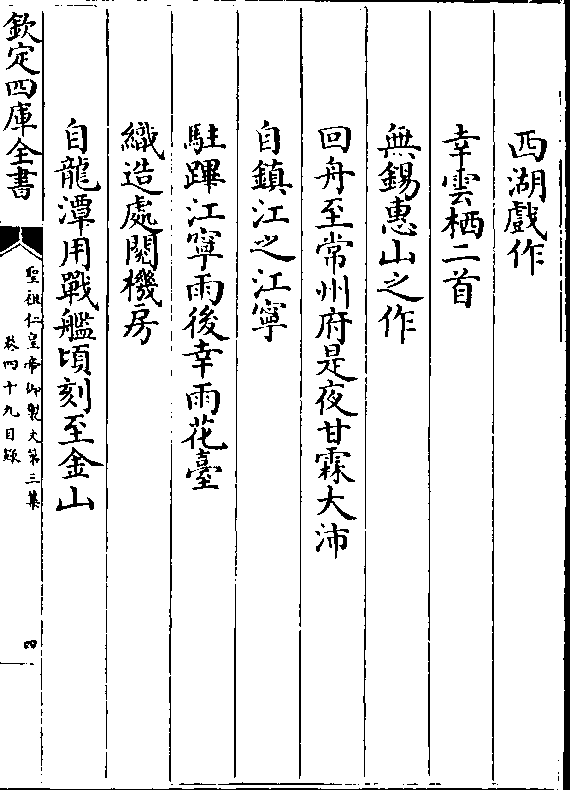 西湖戲作
幸雲栖二首
無錫惠山之作
回舟至常州府是夜甘霖大沛
自鎮江之江寧
駐蹕江寧雨後幸雨花臺
織造處閱機房
自龍潭用戰艦頃刻至金山
欽定四庫全書
聖祖仁皇帝御製文第三集
卷四十九目録
四